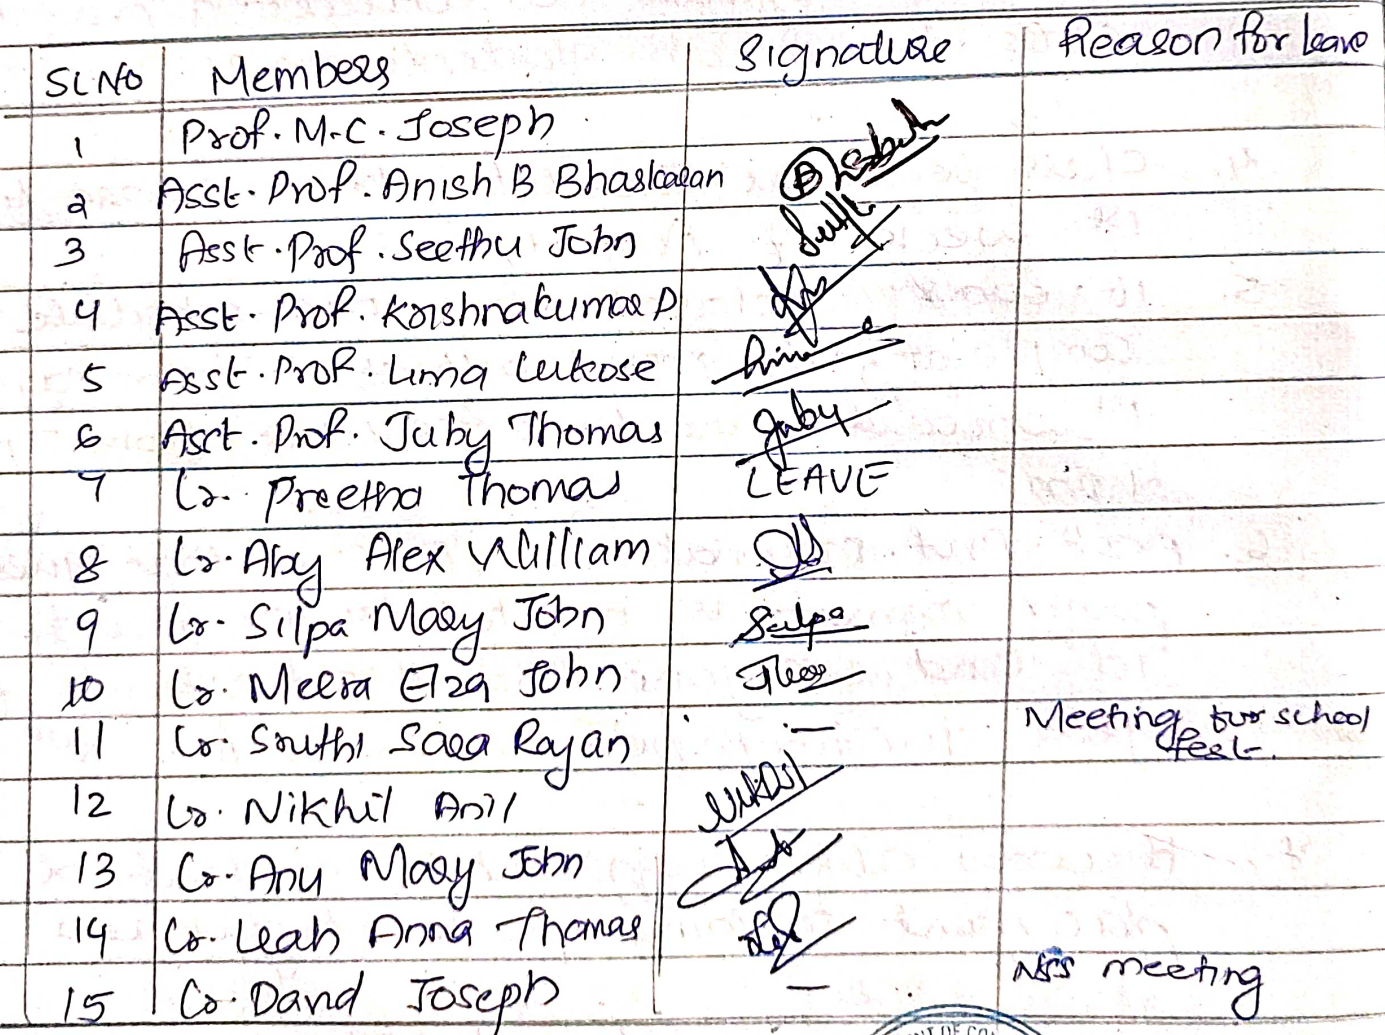 SL NO Members Signature Reason for leave
1 Prof. M.C. Joseph
2 Asst. Prof. Anish B Bhaskaran
3 Asst. Prof. Seethu John
4 Asst. Prof. Krishnakumar P
5 Asst. Prof. Lima Lukose Lima
6 Asst. Prof. Juby Thomas Juby
7 Lr. Preetha Thomas LEAVE
8 Lr. Aby Alex William
9 Lr. Silpa Mary John Silpa
10 Lr. Meera Elza John
11 Lr. Sruthi Sara Rajan — Meeting for school
fest.
12 Lr. Nikhil Anil Nikhil
13 Lr. Anu Mary John
14 Lr. Leah Anna Thomas
15 Lr. David Joseph — NSS meeting